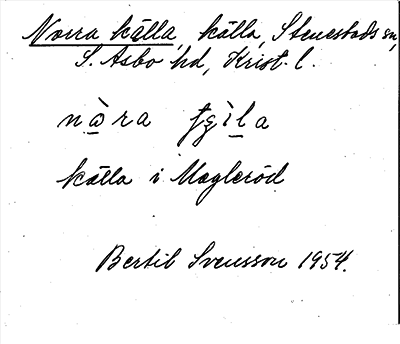 Norra källa, källa, Stenestads sn,
S. Åsbo hd, Krist. l.
källa i Magleröd
Bertil Svensson 1954.